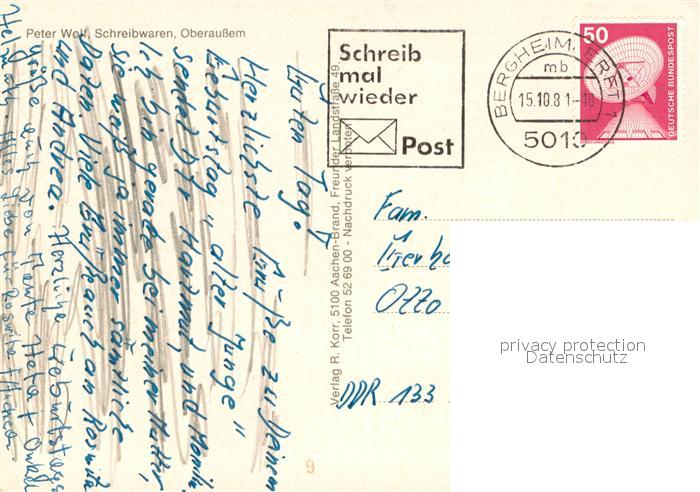 Peter Wolf, Schreibwaren, Oberaußem
Schreib
mal
wieder
Post
BERGHEIM, ERFT 1
mb
15.10.81-18
5010
50
DEUTSCHE BUNDESPOST
Verlag R. Korr, 5100 Aachen-Brand, Freunder Landstraße 49
Telefon 52 69 00 - Nachdruck verboten
Guten Tag!
Herzlichste Grüße zu Deinem
Geburtstag "alter Junge"
sendet Dir Hartmut und
Ich bin gerade bei meiner Mutter,
sie weiß ja immer sämtliche
Daten. Viele Grüße auch an Roswita
und Andrea. Herzliche Geburtstags-
grüße auch von Tante Herta + Onkel
Helmuth. Alles Liebe für Roswita + Andrea
Fam.
Otto
DDR 133
9
privacy protection
Datenschutz